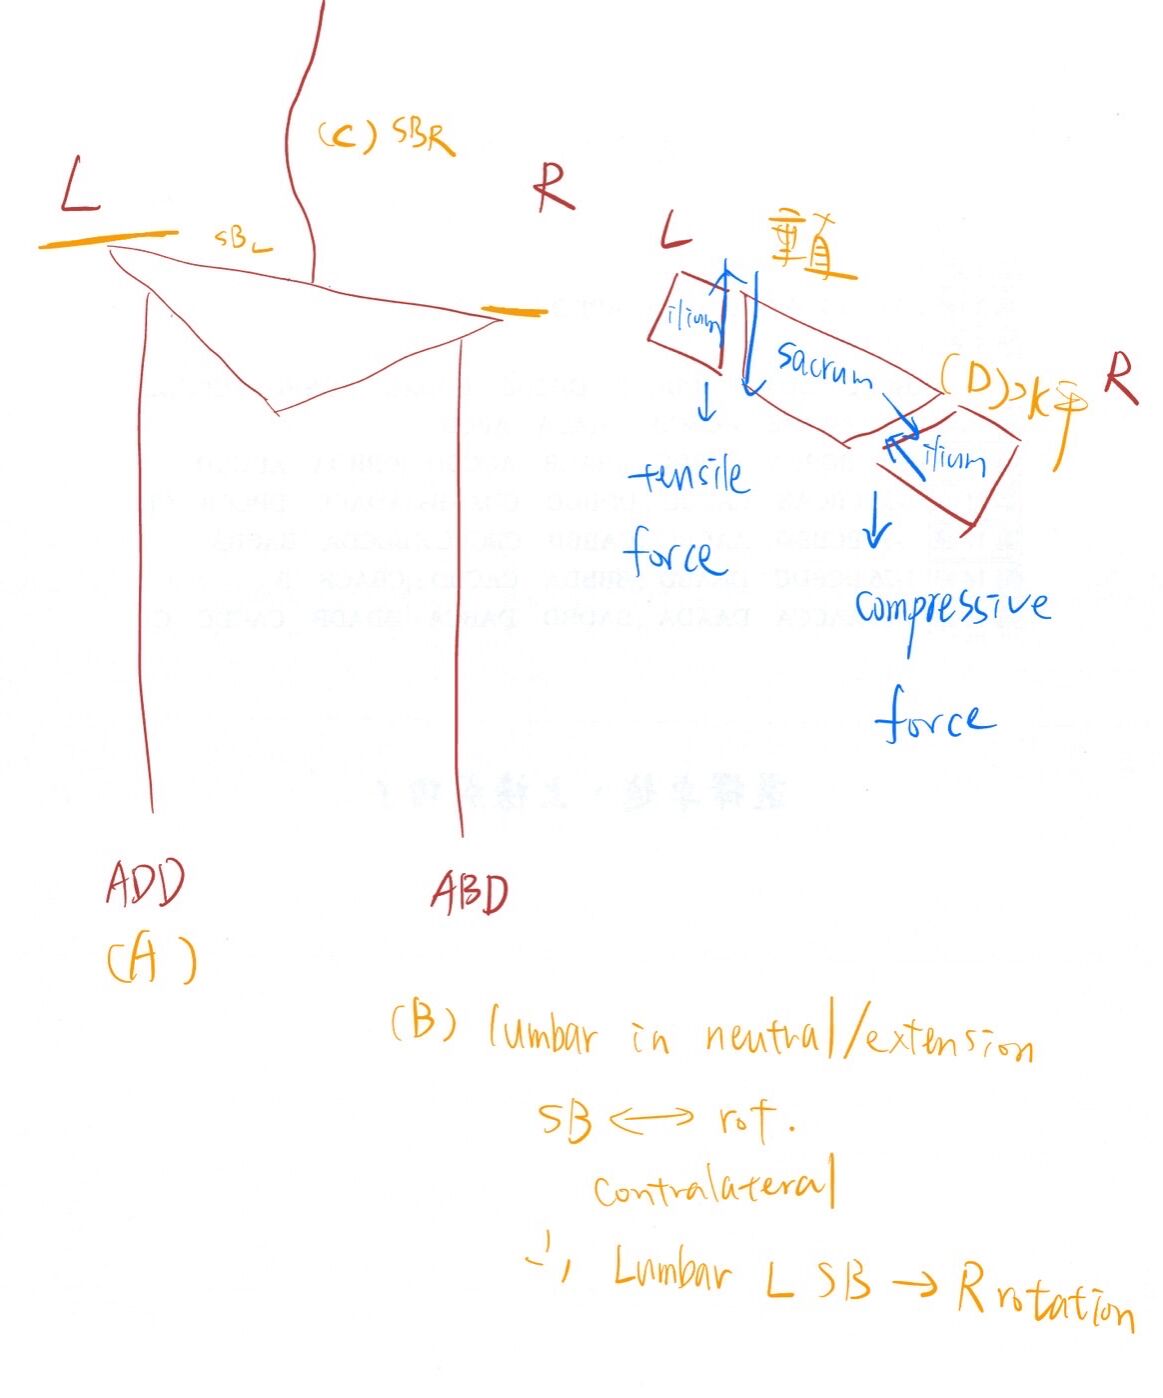 (C) SBR
L
R
SBL
ADD
ABD
(A)
L
垂直
ilium
sacrum
(D)水平
R
ilium
tensile
force
compressive
force
(B) lumbar in neutral/extension
SB ↔ rot.
contralateral
∴, Lumbar L SB → R rotation